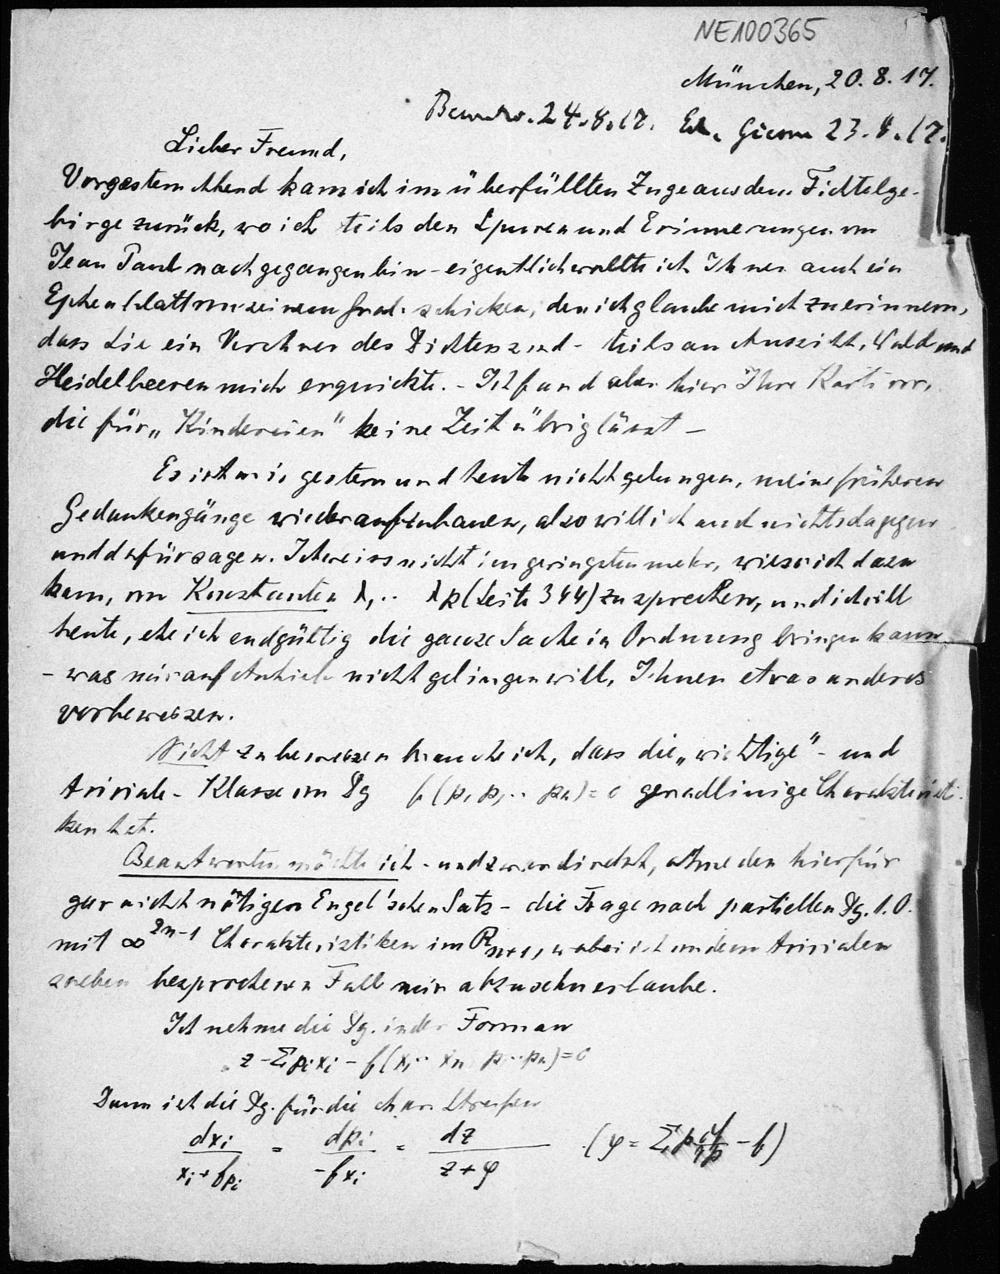 NE100365
München, 20.8.17.
Beantw. 24.8.17. Erh. 23.8.17.
Lieber Freund,
Vorgestern Abend kam ich im überfüllten Zuge aus dem Fichtelge-
birge zurück, wo ich teils den Spuren und Erinnerungen von
Jean Paul nachgegangen bin - eigentlich wollte ich Ihnen auch ein
Epheublatt von seinem Grab schicken, den ich glaube mich zu erinnern,
dass Sie ein Verehrer des Dichters sind - teils an Aussicht, Wald und
Heidelbeeren mich erquickte. - Ich fand aber hier Ihre Karte vor,
die für „Kindereien" keine Zeit übrig lässt -
Es ist mir gestern und heute nicht gelungen, meine früheren
Gedankengänge wieder aufzubauen, also will ich auch nichts dagegen
und dafür sagen. Ich weiss nicht im geringsten mehr, wieso ich dazu
kam, von Konstanten λ, .. λp (Seite 344) zu sprechen, und ich will
heute, ehe ich endgültig die ganze Sache in Ordnung bringen kann
- was mir auf Anhieb nicht gelingen will, Ihnen etwas anderes
vorbeweisen.
Nicht zu beweisen brauche ich, dass die „wichtige" - und
triviale - Klasse von Dg f(p, p, .. pn) = 0 geradlinige Charakteristi-
ken hat.
Beantworten möchte ich - und zwar direkt, ohne den hierfür
gar nicht nötigen Engel'schen Satz - die Frage nach partiellen Dg. 1. O.
mit ∞^2n-1 Charakteristiken im R_n+1, wobei ich von dem trivialen
soeben besprochenen Fall mir abzusehn erlaube.
Ich nehme die Dg. in der Form an
z - Σ pi xi - f(x, .. xn p, .. pn) = 0
Dann ist die Dg. für die char. Streifen
dxi / (xi + fpi) = dpi / (-fxi) = dz / (z + φ) (φ = Σ p ∂f/∂p - f)